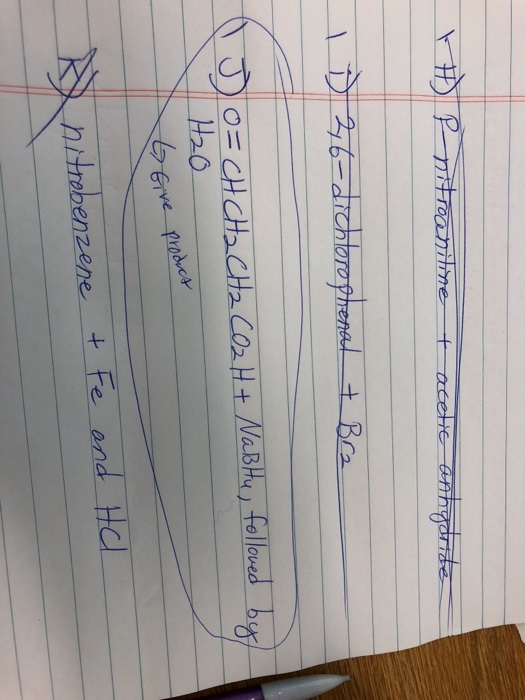 H) P-nitroaniline + acetic anhydride
I) 2,6-dichlorophenol + Br2
J) O=CHCH2CH2CO2H + NaBH4, followed by
H2O
↳ Give product
K) nitrobenzene + Fe and HCl